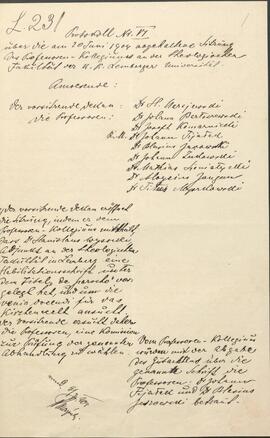 L. 231
Protokoll Nr. VI
über die am 20 Juni 1904 abgehaltene Sitzung
des Professoren-Kollegiums an der theologischen
Fakultät der k. k. Lemberger Universität.
Anwesende:
Der vorsitzende Dekan:
Die Professoren:
Dr Johann Bartoszewski
Dr Josef Komarnicki
Dr Johann Fijałek
Dr Blasius Jaszowski
Dr Johann Żukowski
Dr Mathias Sieniatycki
Dr Aloysius Jougan
Dr Titus Myszkowski
Der vorsitzende Dekan eröffnet
die Sitzung, indem er dem
Professoren-Kollegium mittheilt
dass Dr Stanislaus
Adjunkt an der theologischen
Fakultät in Lemberg eine
Habilitationsschrift unter
dem Titel: „De parocho" vor-
gelegt hat, und um die
venia docendi für das
Kirchenrecht ansucht.
Der vorsitzende ersucht daher
die Professoren, eine Kommission
zur Prüfung der genannten
Abhandlung zu wählen.
Vom Professoren-Kollegium
wurden mit der Abgabe
des Gutachtens über die
genannte Schrift die
Professoren: Dr Johann
Fijałek und Dr Blasius
Jaszowski betraut.